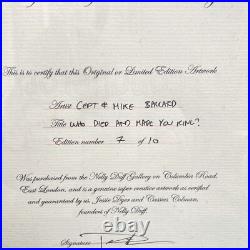 This is to certify that this Original or Limited Edition Artwork
Artist CEPT & MIKE BALLARD
Title WHO DIED AND MADE YOU KING?
Edition number 7 of 10
Was purchased from the Nelly Duff Gallery on Columbia Road,
East London, and is a genuine super creative artwork as verified
and guaranteed by us, Jessie Dyer and Cassius Colman,
founders of Nelly Duff.
Signature